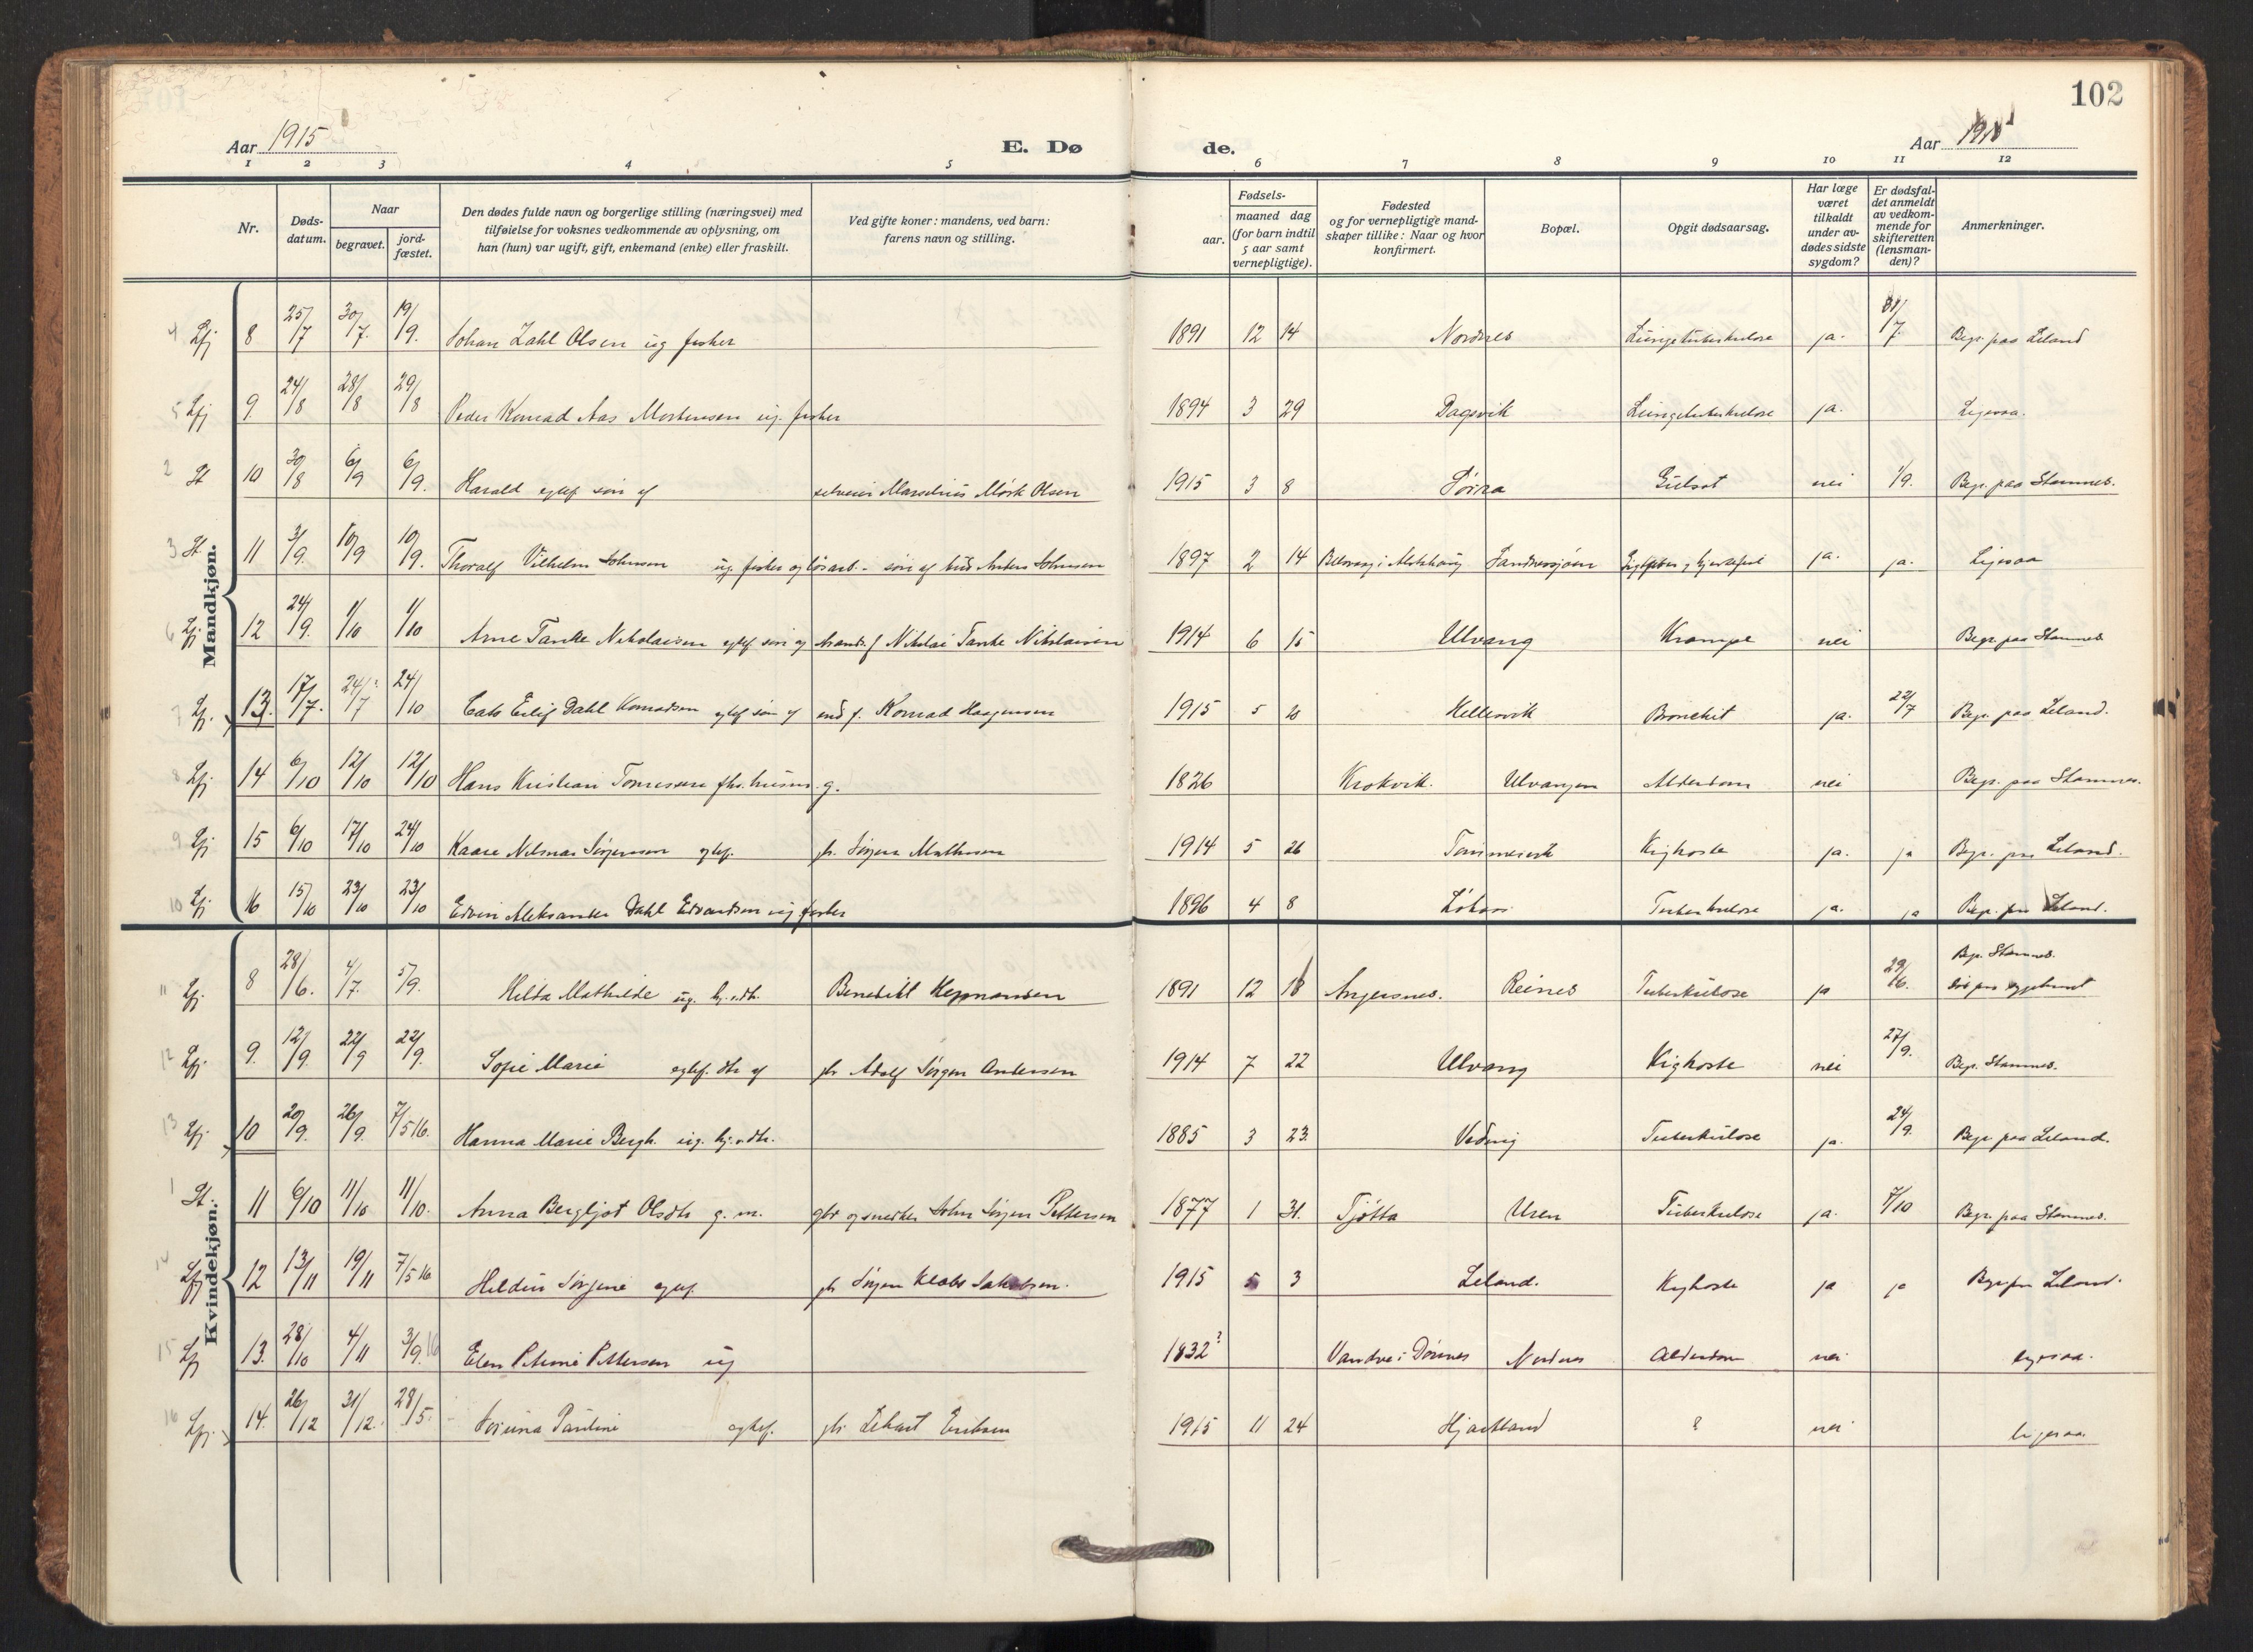 102
Aar 1915 E. Dø de. Aar 1915
1 2 3 4 5 6 7 8 9 10 11 12
Nr.
Døds-
datum.
Naar
begravet.
jord-
fæstet.
Den dødes fulde navn og borgerlige stilling (næringsvei) med
tilføielse for voksnes vedkommende av oplysning, om
han (hun) var ugift, gift, enkemand (enke) eller fraskilt.
Ved gifte koner: mandens, ved barn:
farens navn og stilling.
Fødsels-
aar.
maaned dag
(for barn indtil
5 aar samt
vernepligtige).
Fødested
og for vernepligtige mand-
skaper tillike: Naar og hvor
konfirmert.
Bopæl.
Opgit dødsaarsag.
Har læge
været
tilkaldt
under av-
dødes sidste
sygdom?
Er dødsfal-
det anmeldt
av vedkom-
mende for
skifteretten
(lensman-
den)?
Anmerkninger.
Mandkjøn.
4 Lfj 8 25/7 30/7. 19/9. Johan Zahl Olsen ug fisker 1891 12 14 Nordnes Lungetuberkulose ja. 31/7. Begr. paa Leland
5 Lfj 9. 24/8 28/8 29/8 Peder Konrad Aas Mortensen ug. fisker 1894 3 29 Dagsvik Lungetuberkulose ja. Ligesaa.
2 St 10 30/8 6/9 6/9. Harald egtef søn af selveier Marselius Mørk Olsen 1915 3 8 Gulsot nei 1/9. Begr. paa Stamnes.
3 St. 11 3/9. 10/9 10/9. Thoralf Vilhelm Johnsen ug. fisker og løsarb. - søn af Anders Johnsen 1897 2 14 i Alstahaug Sandnessjøen ja. ja. Ligesaa
6 Lfj 12 24/9. 1/10 1/10 Arne Tanke Nikolaisen egtef søn af Nikolai Tanke Nikolaisen 1914 6 15 Ulvang Krampe nei Begr. paa Stamnes
7 Lfj. 13. 17/7. 24/7? 24/10 Eilif Dahl Konradsen egtef søn af Konrad Haagensen 1915 5 20 Hellesvik Bronchit ja. 22/7 Begr. paa Leland.
8 Lfj 14 6/10 12/10 12/10 Hans Kristian Tomassen fhv. husm. g. 1826 Krokvik. Ulvangen Alderdom nei Begr. paa Stamnes.
9 Lfj 15 6/10 17/10 24/10 Kaare Nilmar Jørgensen egtef. gb. Jørgen Mathisen 1914 5 26 Kighoste ja. ja Begr. paa Leland.
10 Lfj 16 15/10 23/10 23/10 Edvin Aleksander Dahl Edvardsen ug fisker 1896 4 8 Tuberkulose ja. ja Begr. paa Leland.
Kvindekjøn.
11 Lfj. 8 28/6. 4/7. 5/9. Hilda Mathilde ug. hj.v.dtr. Benedikt 1891 12 18 Angersnes. Reines Tuberkulose ja 29/6. Begr. Stamnes.
Død paa sygehuset
12 Lfj. 9. 12/9. 22/9 22/9. Sofie Marie egtef. dtr af gb Adolf Jørgen Andersen 1914 7 22 Ulvang Kighoste nei 27/9. Begr. Stamnes.
13 Lfj 10 20/9. 26/9. 7/5 16. Hanna Marie Bergh. ug. hj.v.dtr. 1885 3 23. Tuberkulose ja. 24/9. Begr. paa Leland.
1 St. 11 6/10 11/10 11/10. Anna Bergljot Olsdtr g. m. gbr og snedker John Jørgen Pettersen 1877 1 31. Tjøtta Uren Tuberkulose ja. 7/10 Begr. paa Stamnes.
14 Lfj 12 13/11 19/11 7/5 16 Heldine Jørgine egtef gb Jørgen Klabo Jakobsen. 1915 5 3 Leland. Kighoste ja ja Begr paa Leland.
15 Lfj 13. 28/10 4/11 3/9. 16 Elen Petrine Pettersen ug 1832? Vandve i Dønnes Nordnes Alderdom nei ligesaa.
16 Lfj. 14. 26/12 31/12. 28/5. Pauline egtef. gb. Eriksen 1915 11 24 Hjartland ? nei ligesaa